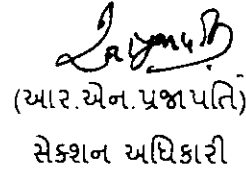 (આર.એન.પ્રજાપતિ)
સેક્શન અધિકારી